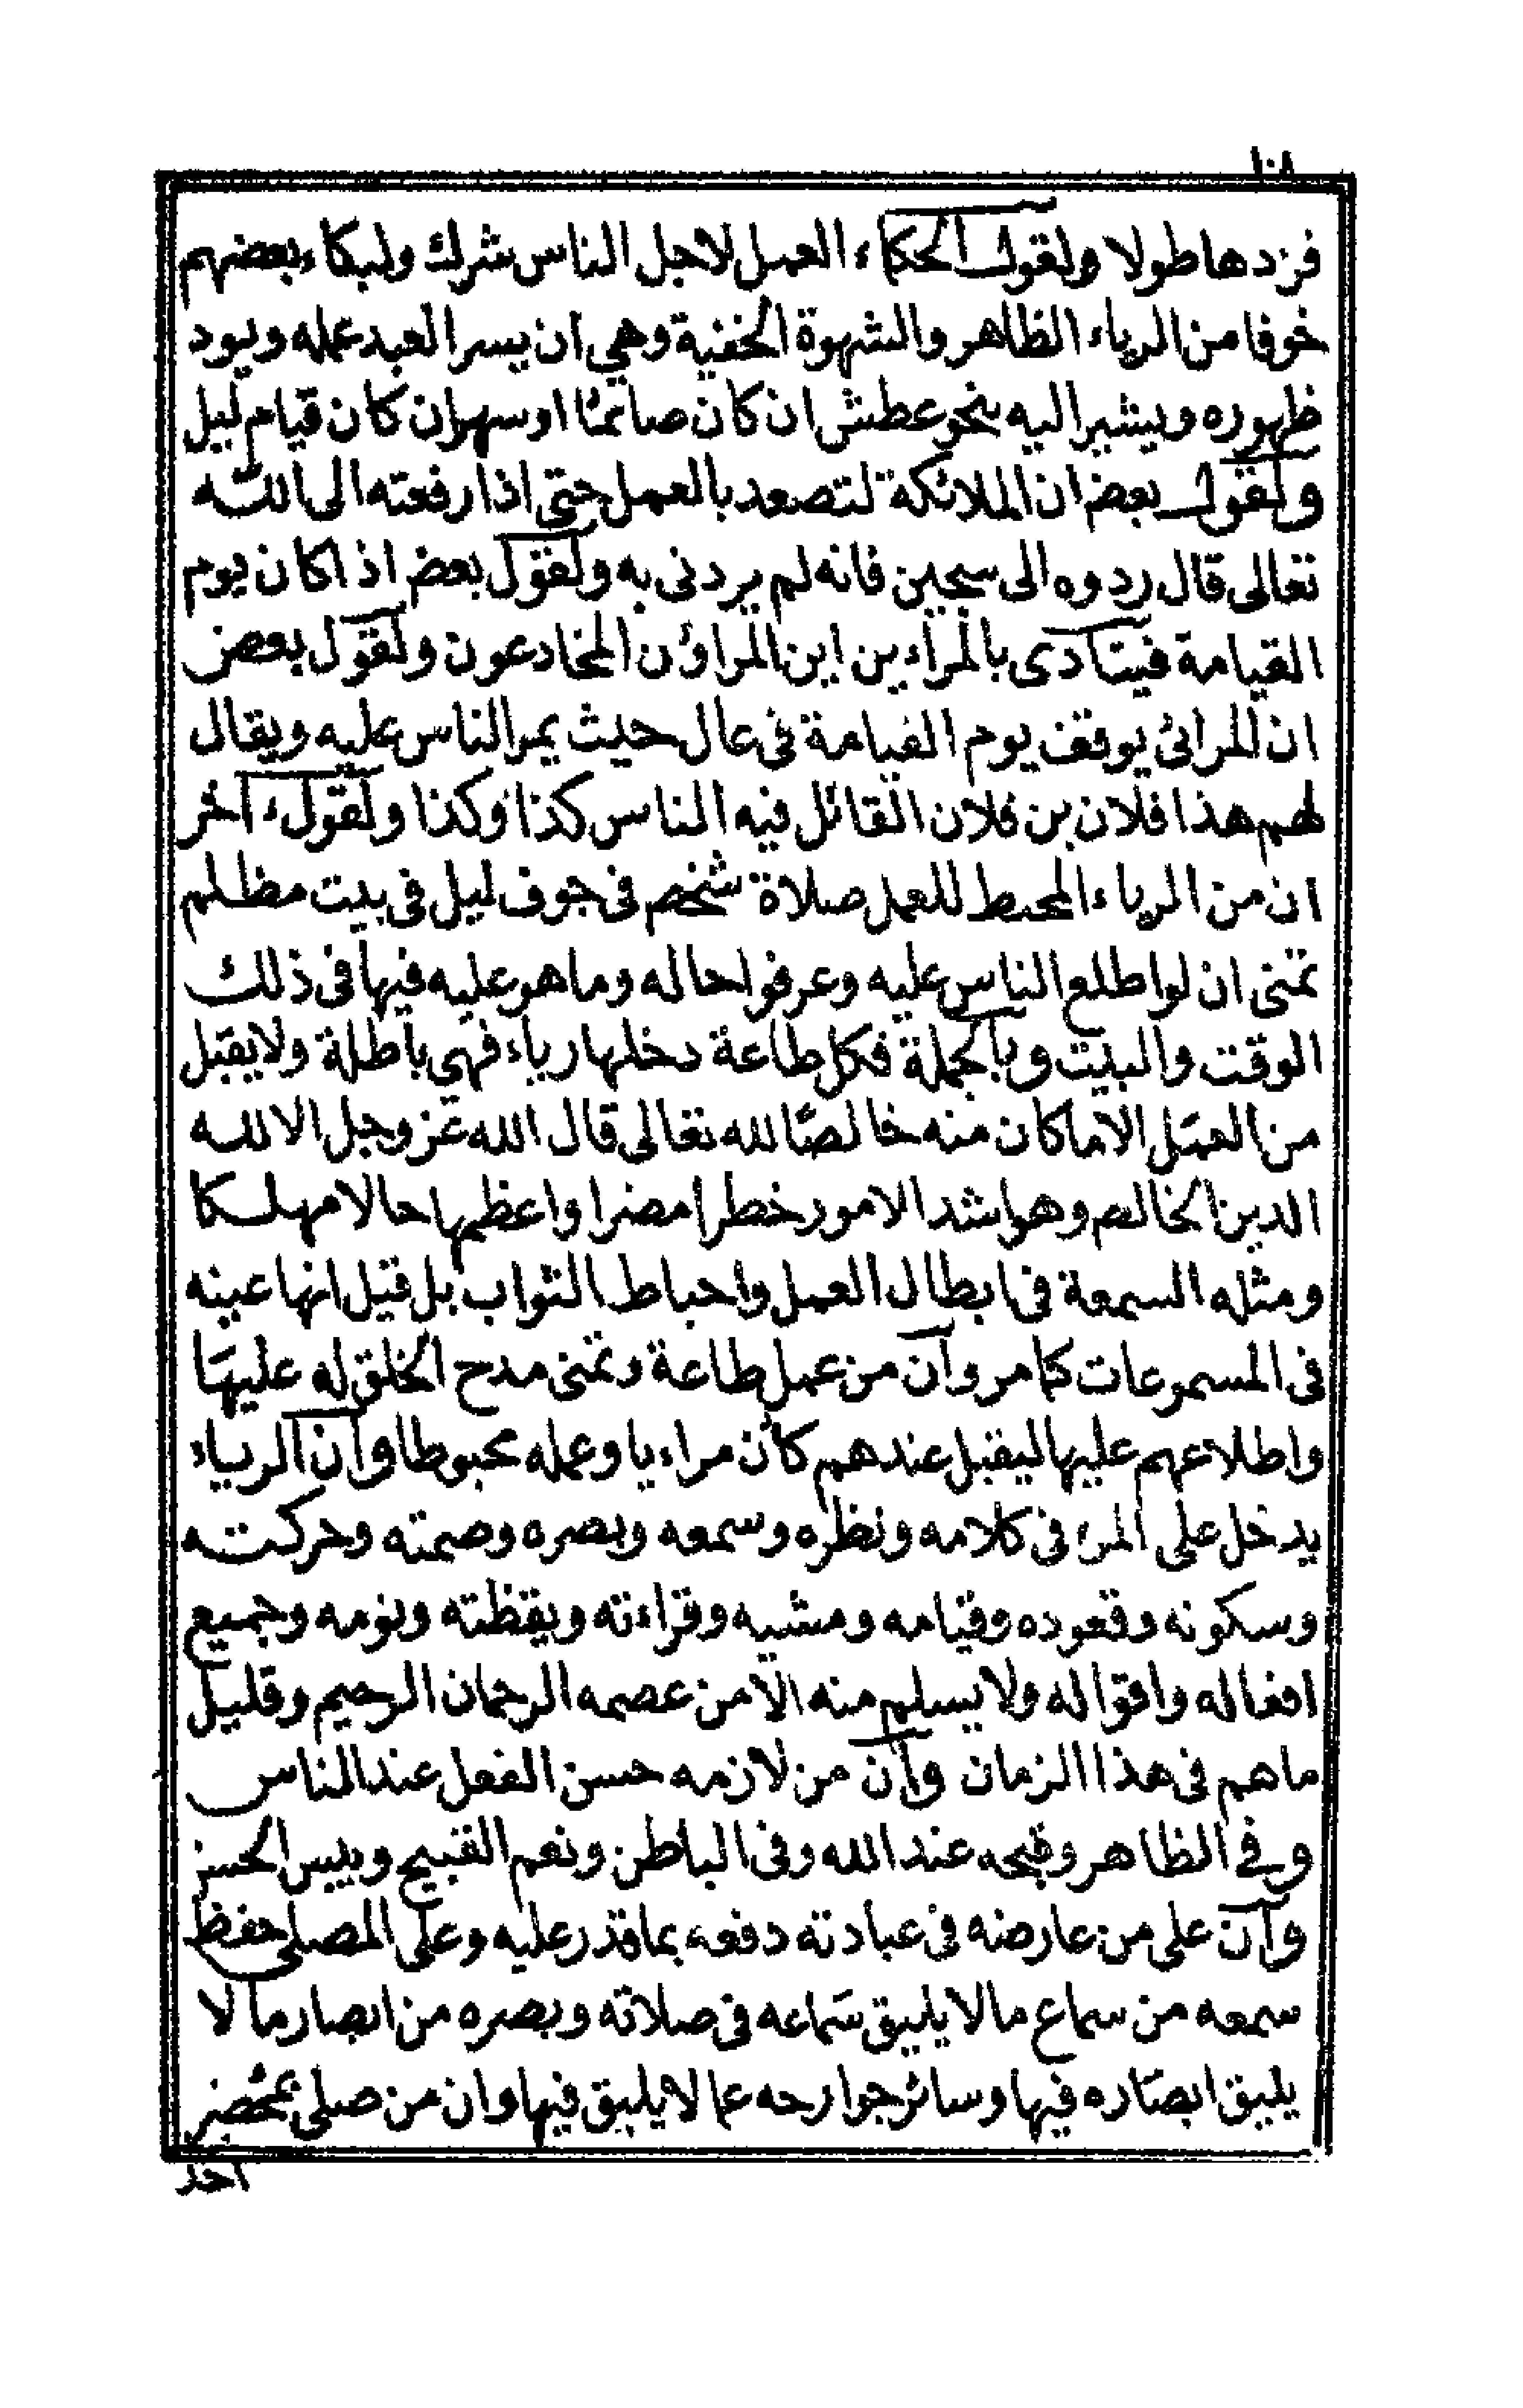 ١٠٨
فزدها طولا ولقول الحكاء العمل لاجل الناس شرك ولبكاء بعضهم
خوفا من الرياء الظاهر والشهوة الخفية وهي ان يسر العبد عمله ويود
ظهوره ويشير اليه بنحو عطش ان كان صائمًا او سهران كان قيام ليل
ولقول بعض ان الملائكة لتصعد بالعمل حتى اذا رفعته الى الله
تعالى قال ردوه الى سجين فانه لم يردنى به ولقول بعض اذا كان يوم
القيامة فيتادى بالمراءين اين المراؤن المخادعون ولقول بعض
ان المرائ يوقف يوم القيامة فى عال حيث يمر الناس عليه ويقال
لهم هذا فلان بن فلان القائل فيه الناس كذا وكذا ولقولء اخر
ان من الرياء المحبط للعمل صلاة شخص فى جوف ليل فى بيت مظلم
تمنى ان لو اطلع الناس عليه وعرفوا حاله وما هو عليه فيها فى ذلك
الوقت والبيت وبالجملة فكل طاعة دخلها رياء فهي باطلة ولا يقبل
من العمل الا ما كان منه خالصًا لله تعالى قال الله عز وجل الا لله
الدين الخالص وهو اشد الامور خطرا مضرا واعظمها حالا مهلكا
ومثله السمعة فى ابطال العمل واحباط الثواب بل قيل انها عينه
فى المسموعات كما مر وآن من عمل طاعة وتمنى مدح الخلق له عليها
واطلاعهم عليها ليقبل عندهم كان مراءيا وعمله محبوطا وآن الرياء
يدخل على المرء فى كلامه ونظره وسمعه وبصره وصمته وحركته
وسكونه وقعوده وقيامه ومشيه وقراءته ويقظته ونومه وجميع
افعاله واقواله ولا يسلم منه الا من عصمه الرحمان الرحيم وقليل
ما هم فى هذا الزمان وآن من لازمه حسن الفعل عند الناس
وفى الظاهر وقبحه عند الله وفى الباطن ونعم القبيح وبيس الحسن
وآن على من عارضه فى عبادته دفعه بما قدر عليه وعلى المصلى حفظ
سمعه من سماع ما لا يليق سماعه فى صلاته وبصره من ابصار ما لا
يليق ابصاره فيها وسائر جوارحه عما لا يليق فيها وان من صلى بمحضر
احد